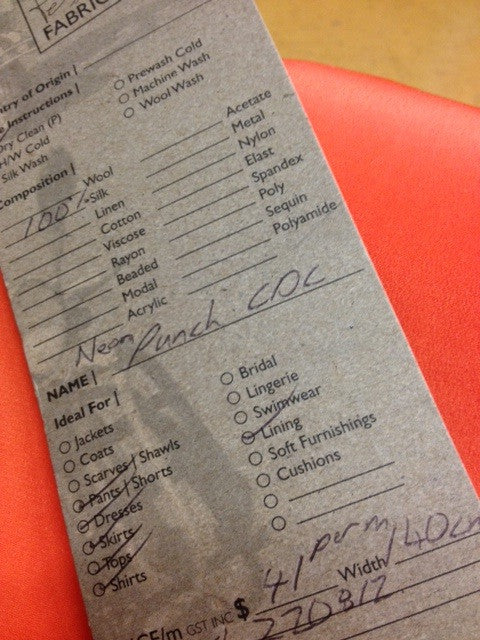 FABRIC
ntry of Origin |
Instructions |
Dry Clean (P)
H/W Cold
Silk Wash
Prewash Cold
Machine Wash
Wool Wash
Composition |
Wool
100% Silk
Linen
Cotton
Viscose
Rayon
Beaded
Modal
Acrylic
Acetate
Metal
Nylon
Elast
Spandex
Poly
Sequin
Polyamide
NAME | Neon Punch CDC
Ideal For |
Jackets
Coats
Scarves | Shawls
Pants | Shorts
Dresses
Skirts
Tops
Shirts
Bridal
Lingerie
Swimwear
Lining
Soft Furnishings
Cushions
CE/m GST INC $ 41 per m
Width 140cm
220812